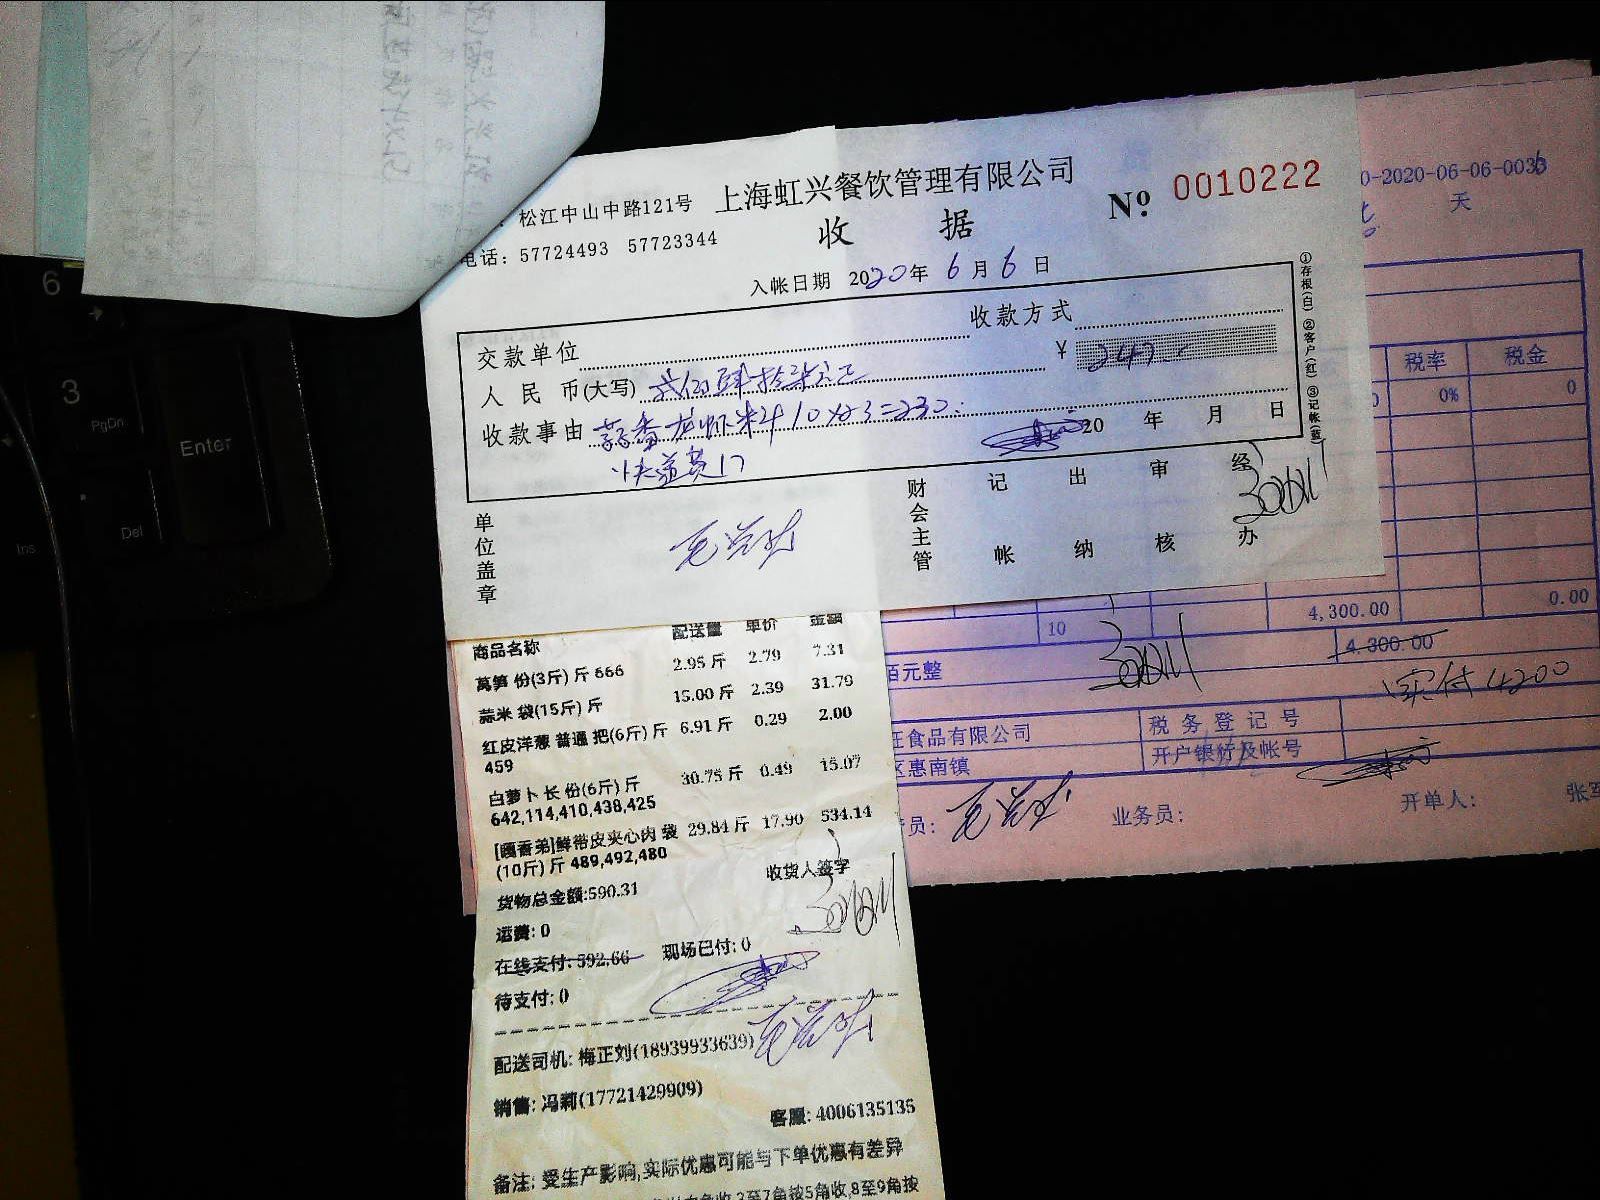 松江中山中路121号
上海虹兴餐饮管理有限公司
电话: 57724493 57723344
收 据
Nº 0010222
入帐日期 2020年 6月 6日
交款单位
收款方式
人民币(大写) 贰佰肆拾柒元正
¥ 247.-
收款事由
快递费17
20 年 月 日
①存根(白) ②客户(红) ③记帐(蓝)
单位盖章
财会主管
记帐
出纳
审核
经办
商品名称 配送量 单价 金额
莴笋 份(3斤) 斤 666 2.95 斤 2.79 7.31
蒜米 袋(15斤) 斤 15.00 斤 2.39 31.79
红皮洋葱 普通 把(6斤) 斤 6.91 斤 0.29 2.00
459
白萝卜 长 份(6斤) 斤 30.75 斤 0.49 15.07
642,114,410,438,425
[嘎香弟]鲜带皮夹心肉 袋 29.84 斤 17.90 534.14
(10斤) 斤 489,492,480
货物总金额:590.31
收货人签字
运费: 0
在线支付: 592.66 现场已付: 0
待支付: 0
配送司机: 梅正刘(18939933639)
销售: 冯莉(17721429909)
客服: 4006135135
备注: 受生产影响,实际优惠可能与下单优惠有差异
3至7角按5角收,8至9角按
0-2020-06-06-0036
天
税率 税金
0% 0
4,300.00 0.00
10
4,300.00
佰元整
实付4200
食品有限公司
税务登记号
区惠南镇
开户银行及帐号
员:
业务员:
开单人:
张军
6
3
PgDn
Enter
Del
Ins